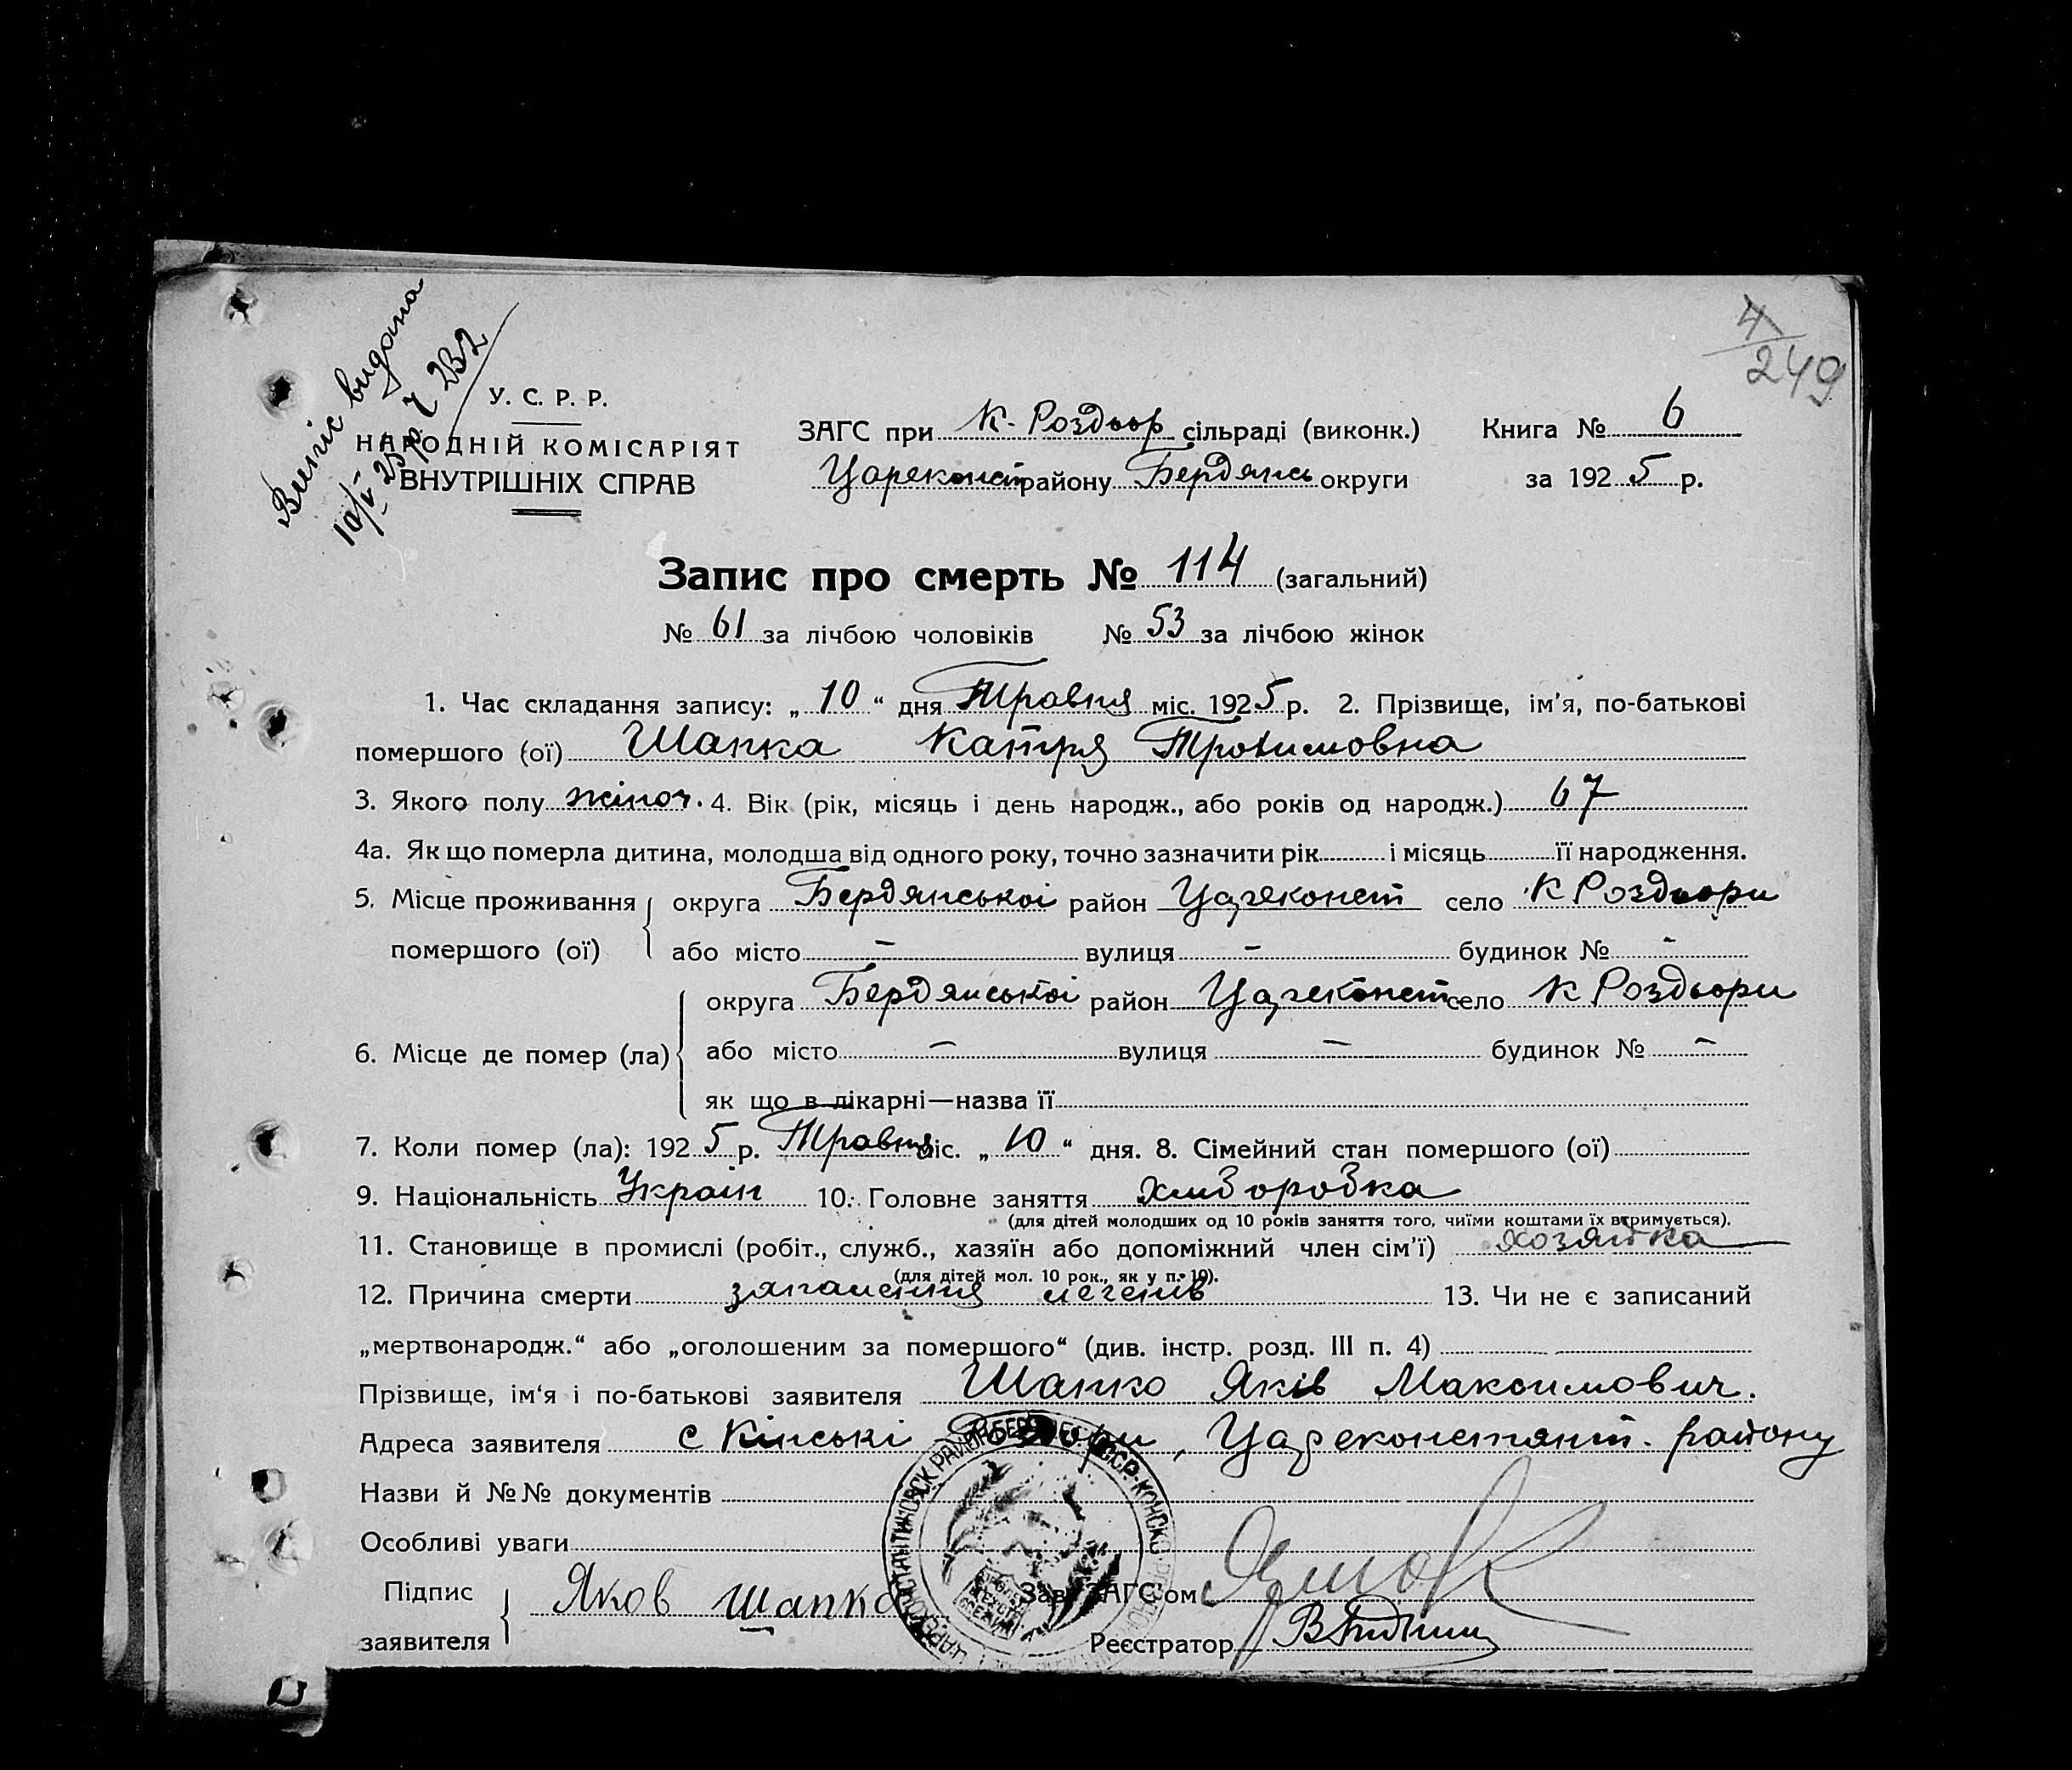 4
249
Випіс видана
10/V 25 р. Ч 232
У. С. Р. Р.
НАРОДНІЙ КОМІСАРІЯТ
ВНУТРІШНІХ СПРАВ
ЗАГС при К-Роздьор сільраді (виконк.)
Книга № 6
Цареконст району Бердянсь округи
за 1925 р.
Запис про смерть № 114 (загальний)
№ 61 за лічбою чоловіків № 53 за лічбою жінок
1. Час складання запису: „ 10 “ дня Травня міс. 1925 р. 2. Прізвище, ім'я, по-батькові
помершого (ої) Шапка Катря Трохимовна
3. Якого полу жіноч. 4. Вік (рік, місяць і день народж., або років од народж.) 67
4а. Як що померла дитина, молодша від одного року, точно зазначити рік і місяць її народження.
5. Місце проживання округа Бердянської район Цареконст село К Роздьори
помершого (ої) або місто – вулиця – будинок № –
округа Бердянської район Цареконст село К Роздьори
6. Місце де помер (ла) або місто – вулиця – будинок № –
як що в лікарні—назва її
7. Коли помер (ла): 1925 р. Травня міс. „ 10 “ дня. 8. Сімейний стан помершого (ої)
9. Національність Україн 10. Головне заняття Хліборобка
(для дітей молодших од 10 років заняття того, чиїми коштами їх втримується).
11. Становище в промислі (робіт., служб., хазяїн або допоміжний член сім'ї) хозяйка
(для дітей мол. 10 рок., як у п. 10).
12. Причина смерти запалення легенів 13. Чи не є записаний
„мертвонародж.“ або „оголошеним за помершого“ (див. інстр. розд. III п. 4)
Прізвище, ім'я і по-батькові заявителя Шапко Яків Максимович.
Адреса заявителя с Кінські Роздори, Цареконстянт. району
Назви й №№ документів
Особливі уваги
Підпис
заявителя
Яков Шапко
Зав. ЗАГС'ом
Реєстратор